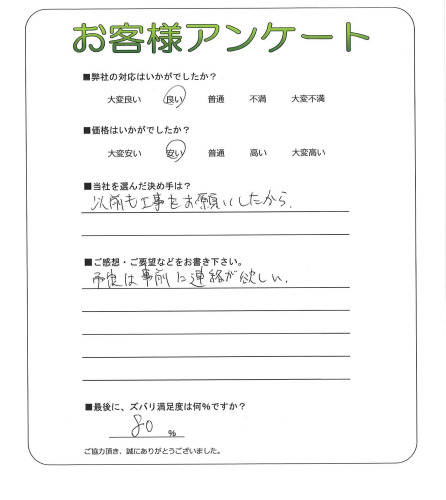 お客様アンケート
■弊社の対応はいかがでしたか?
大変良い 良い 普通 不満 大変不満
■価格はいかがでしたか?
大変安い 安い 普通 高い 大変高い
■当社を選んだ決め手は?
以前も工事をお願いしたから.
■ご感想・ご要望などをお書き下さい。
は事前に連絡が欲しい.
■最後に、ズバリ満足度は何%ですか?
80 %
ご協力頂き、誠にありがとうございました。